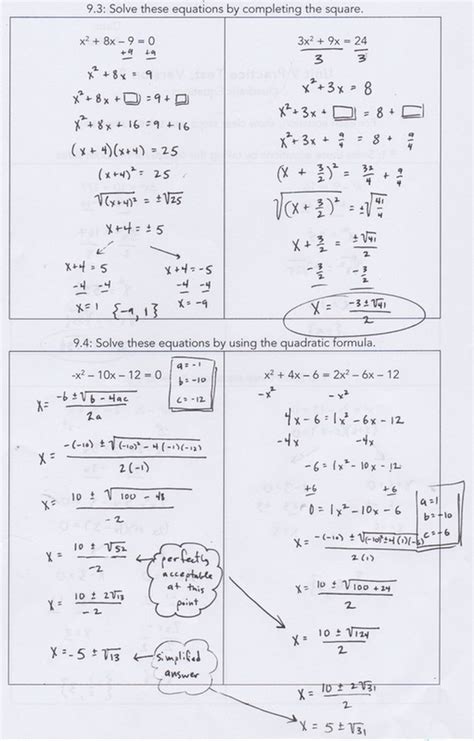 9.3: Solve these equations by completing the square.
x² + 8x - 9 = 0
+9 +9
x² + 8x = 9
x² + 8x + □ = 9 + □
x² + 8x + 16 = 9 + 16
(x + 4)(x+4) = 25
(x+4)² = 25
√(x+4)² = ±√25
x+4 = ± 5
x+4 = 5 x+4 = -5
-4 -4 -4 -4
x=1 {-9, 1} x = -9
3x² + 9x = 24
3 3
x² + 3x = 8
x² + 3x + □ = 8 + □
x² + 3x + 9/4 = 8 + 9/4
(x + 3/2)² = 32/4 + 9/4
√(x + 3/2)² = ±√41/4
x + 3/2 = ±√41/2
-3/2 -3/2
x = -3 ± √41/2
9.4: Solve these equations by using the quadratic formula.
-x² - 10x - 12 = 0
a = -1
b = -10
c = -12
x = -b ± √b - 4ac/2a
x = -(-10) ± √(-10)² - 4(-1)(-12)/2(-1)
x = 10 ± √100 - 48/-2
x = 10 ± √52/-2
perfectly
acceptable
at this
point
x = 10 ± 2√13/-2
x = -5 ± √13
simplified
answer
x² + 4x - 6 = 2x² - 6x - 12
-x² -x²
4x - 6 = 1x² - 6x - 12
-4x -4x
-6 = 1x² - 10x - 12
+6 +6
0 = 1x² - 10x - 6
a = 1
b = -10
c = -6
x = -(-10) ± √(-10)² ± 4(1)(-6)/2(1)
x = 10 ± √100 + 24/2
x = 10 ± √124/2
x = 10 ± 2√31/2
x = 5 ± √31